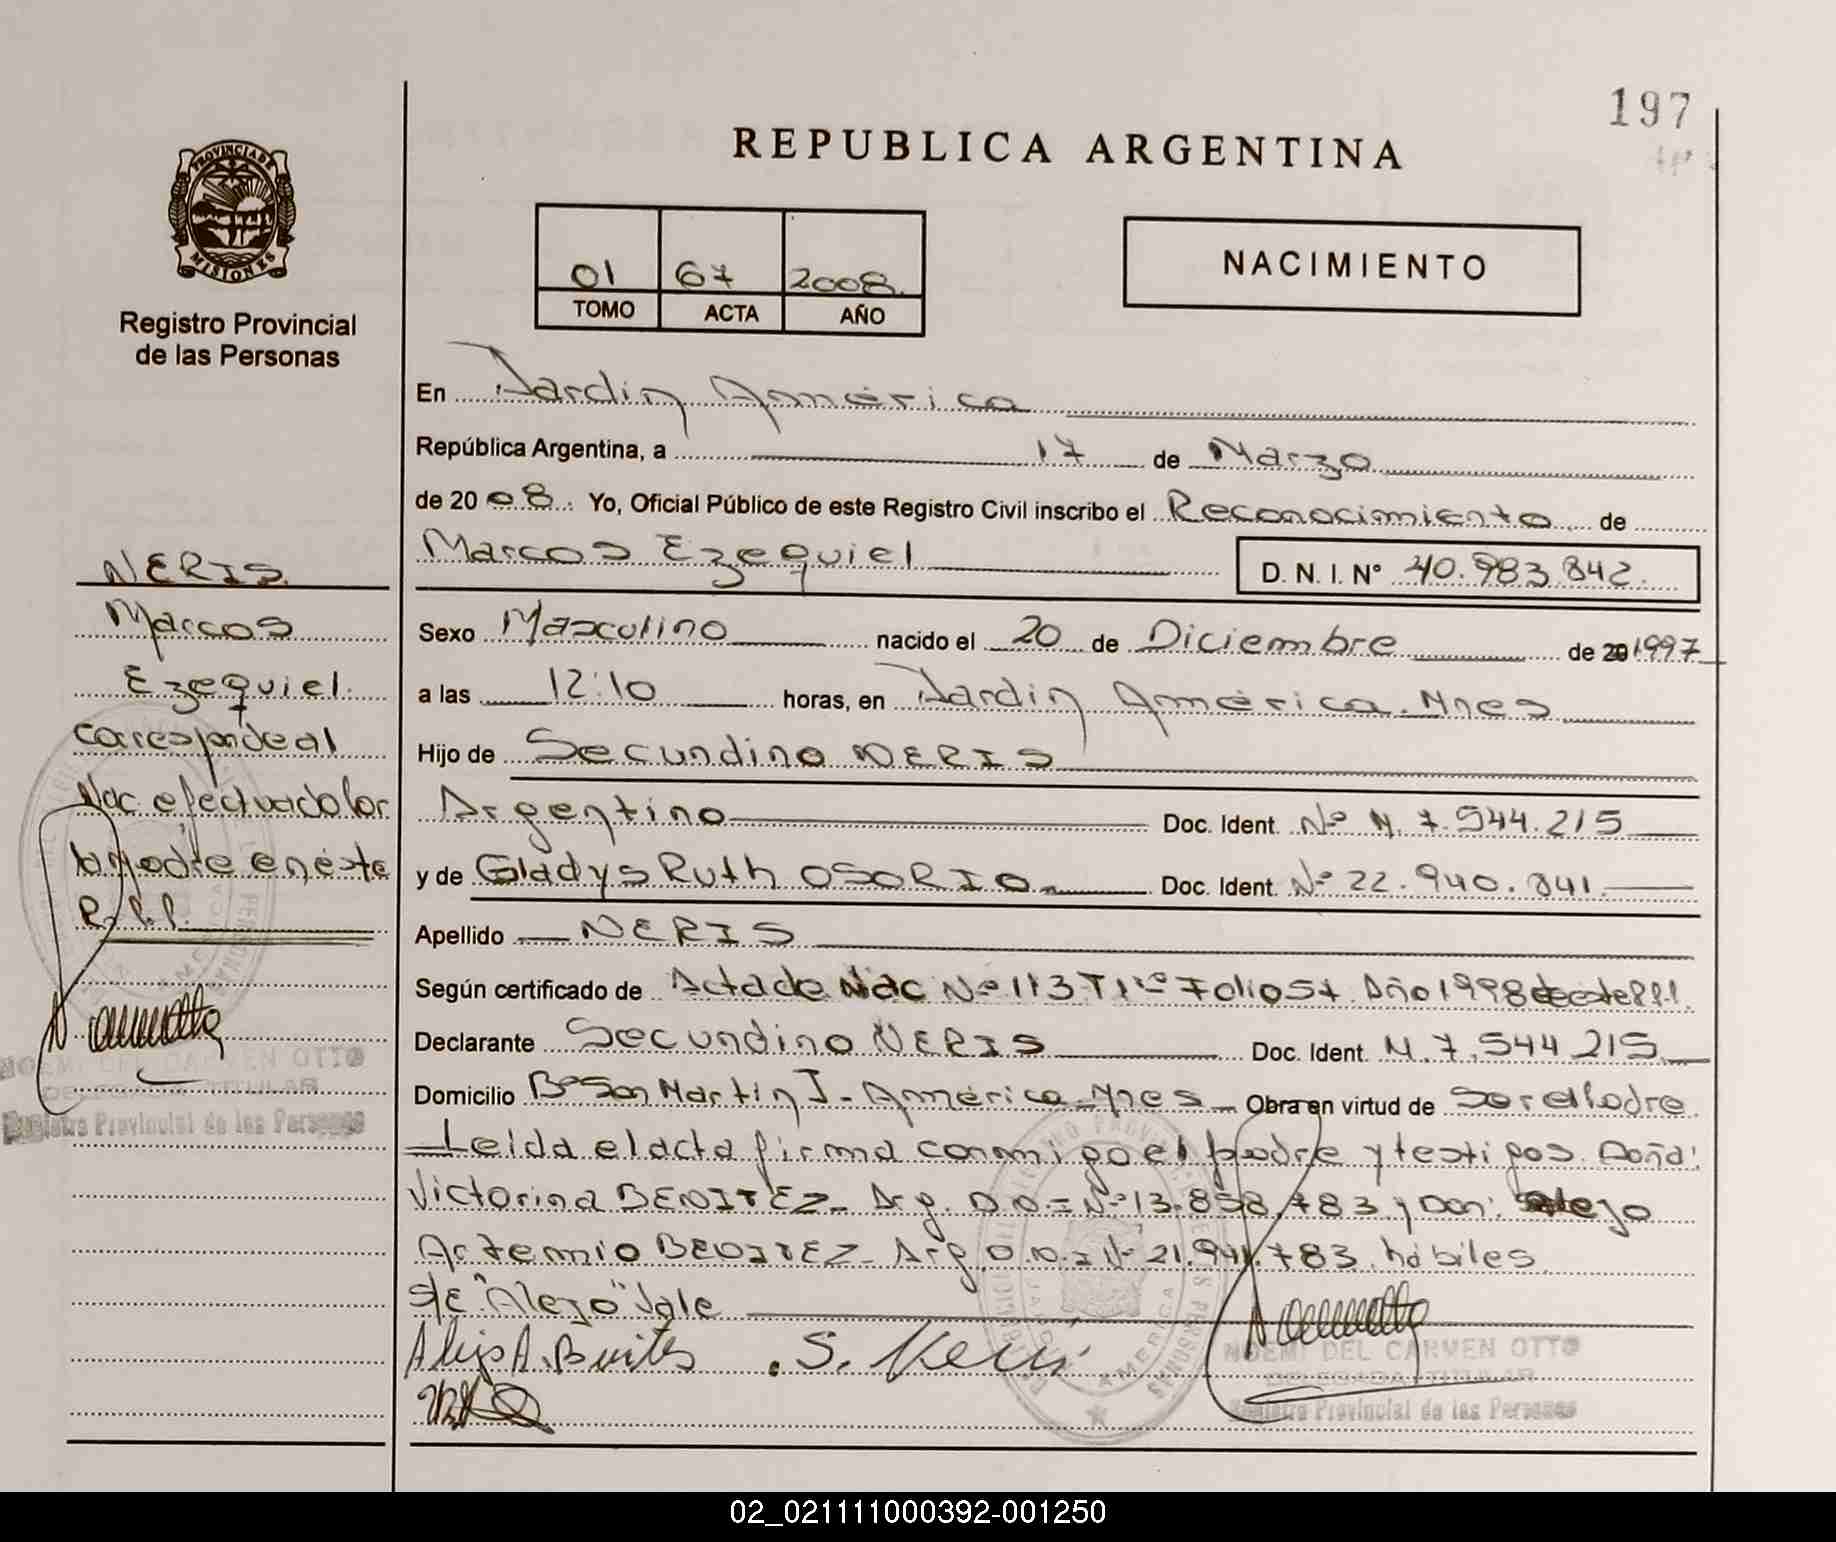 197
REPUBLICA ARGENTINA
PROVINCIA DE
MISIONES
Registro Provincial
de las Personas
01 67 2008
TOMO ACTA AÑO
NACIMIENTO
En Jardin America
República Argentina, a 17 de Marzo
de 20 08. Yo, Oficial Público de este Registro Civil inscribo el Reconocimiento de
Marcos Ezequiel D. N. I. N° 40.983.842.
Sexo Masculino nacido el 20 de Diciembre de 20 1997
a las 12:10 horas, en Jardin América. Mnes
Hijo de Secundino NERIS
Argentino Doc. Ident. Nº M. 7.544.215
y de Gladys Ruth OSORIO Doc. Ident. Nº 22.940.841.
Apellido NERIS
Según certificado de Acta de Nac Nº 113 T1º Folio 57. Año 1998 de este
Declarante Secundino NERIS Doc. Ident. M. 7.544 215
Domicilio Bº San Martin J. América Mnes Obra en virtud de Ser el Padre
Leida el acta firma conmigo el padre y testigos. Doña:
Victorina BENITEZ Arg. Nº 13.858.783 y Don:
Artemio BENITEZ Arg. Nº 21.941.783. hábiles
S/E "Alejo" Vale
S. Neris
NERIS
Marcos
Ezequiel.
corresponde al
Nac. efectuado por
la madre en este
R.P.P.
NOEMI DEL CARMEN OTTO
DELEGADA TITULAR
Registro Provincial de las Personas
NOEMI DEL CARMEN OTTO
DELEGADA TITULAR
Registro Provincial de las Personas
02_021111000392-001250